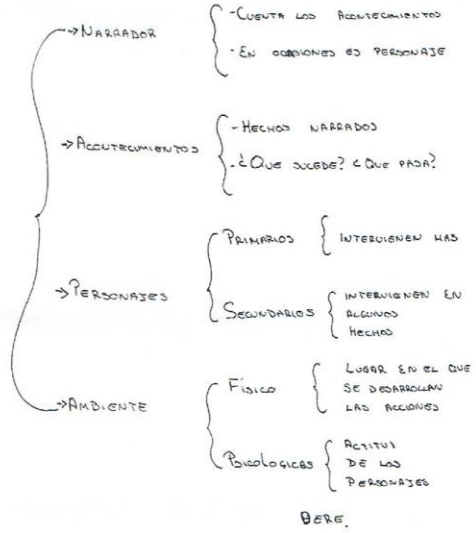 → NARRADOR
- CUENTA LOS ACONTECIMIENTOS
- EN OCASIONES ES PERSONAJE
→ ACONTECIMIENTOS
- HECHOS NARRADOS
- ¿QUE SUCEDE? ¿QUE PASA?
→ PERSONAJES
PRIMARIOS
INTERVIENEN MAS
SECUNDARIOS
INTERVIENEN EN
ALGUNOS
HECHOS
→ AMBIENTE
FÍSICO
LUGAR EN EL QUE
SE DESARROLLAN
LAS ACCIONES
PSICOLOGICAS
ACTITUD
DE LOS
PERSONAJES
BERE.